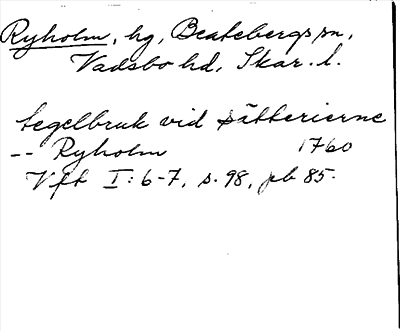 Ryholm, hg, Beatebergs sn,
Vadsbo hd, Skar. l.
tegelbruk vid sätterierne
-- Ryholm 1760
Vft I: 6-7, s. 98, pb 85.